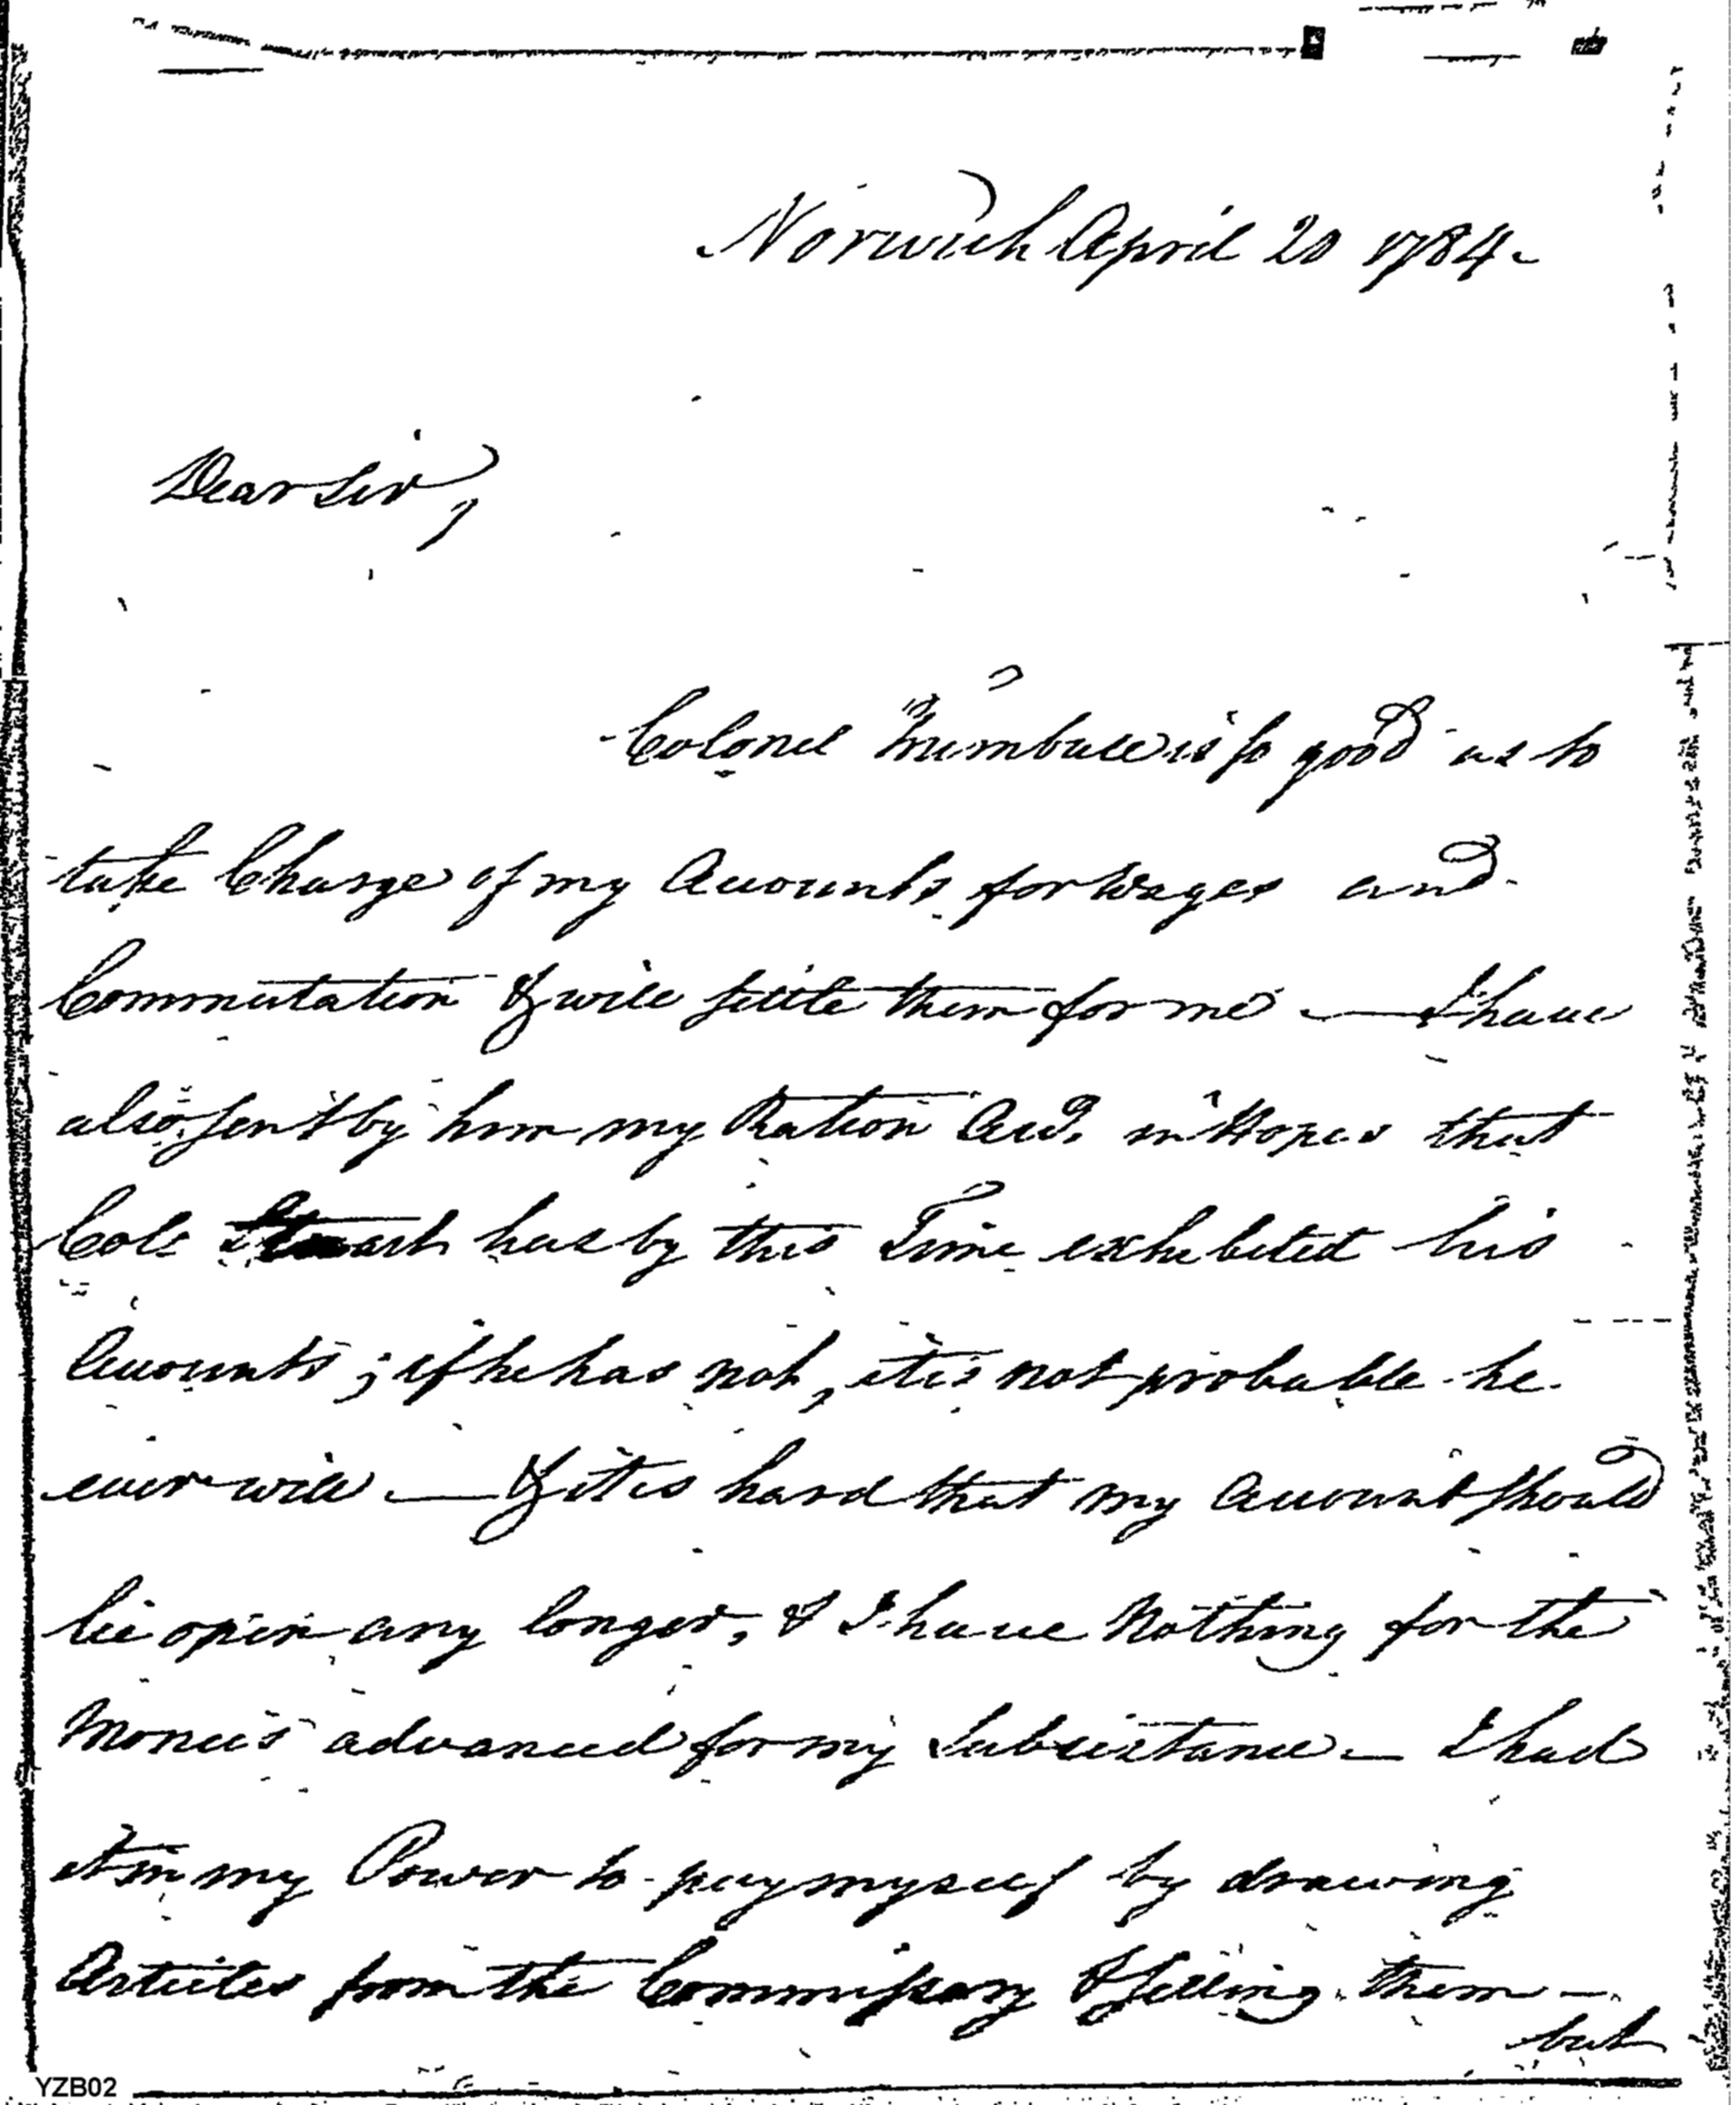 Norwich April 20 1784
Dear Sir,
Colonel Trumbull is so good as to
take Charge of my Accounts for Wages and
Commutation & will settle them for me — I have
also sent by him my Ration Acct. in Hopes that
Colo has by this Time exhibited his
Accounts; if he has not, it is not probable he
ever will — & it is hard that my Account should
lie open any longer, & I have Nothing for the
Monies advanced for my Subsistance — I had
it in my Power to pay myself by drawing
Articles from the Commissary & selling them —
but
YZB02